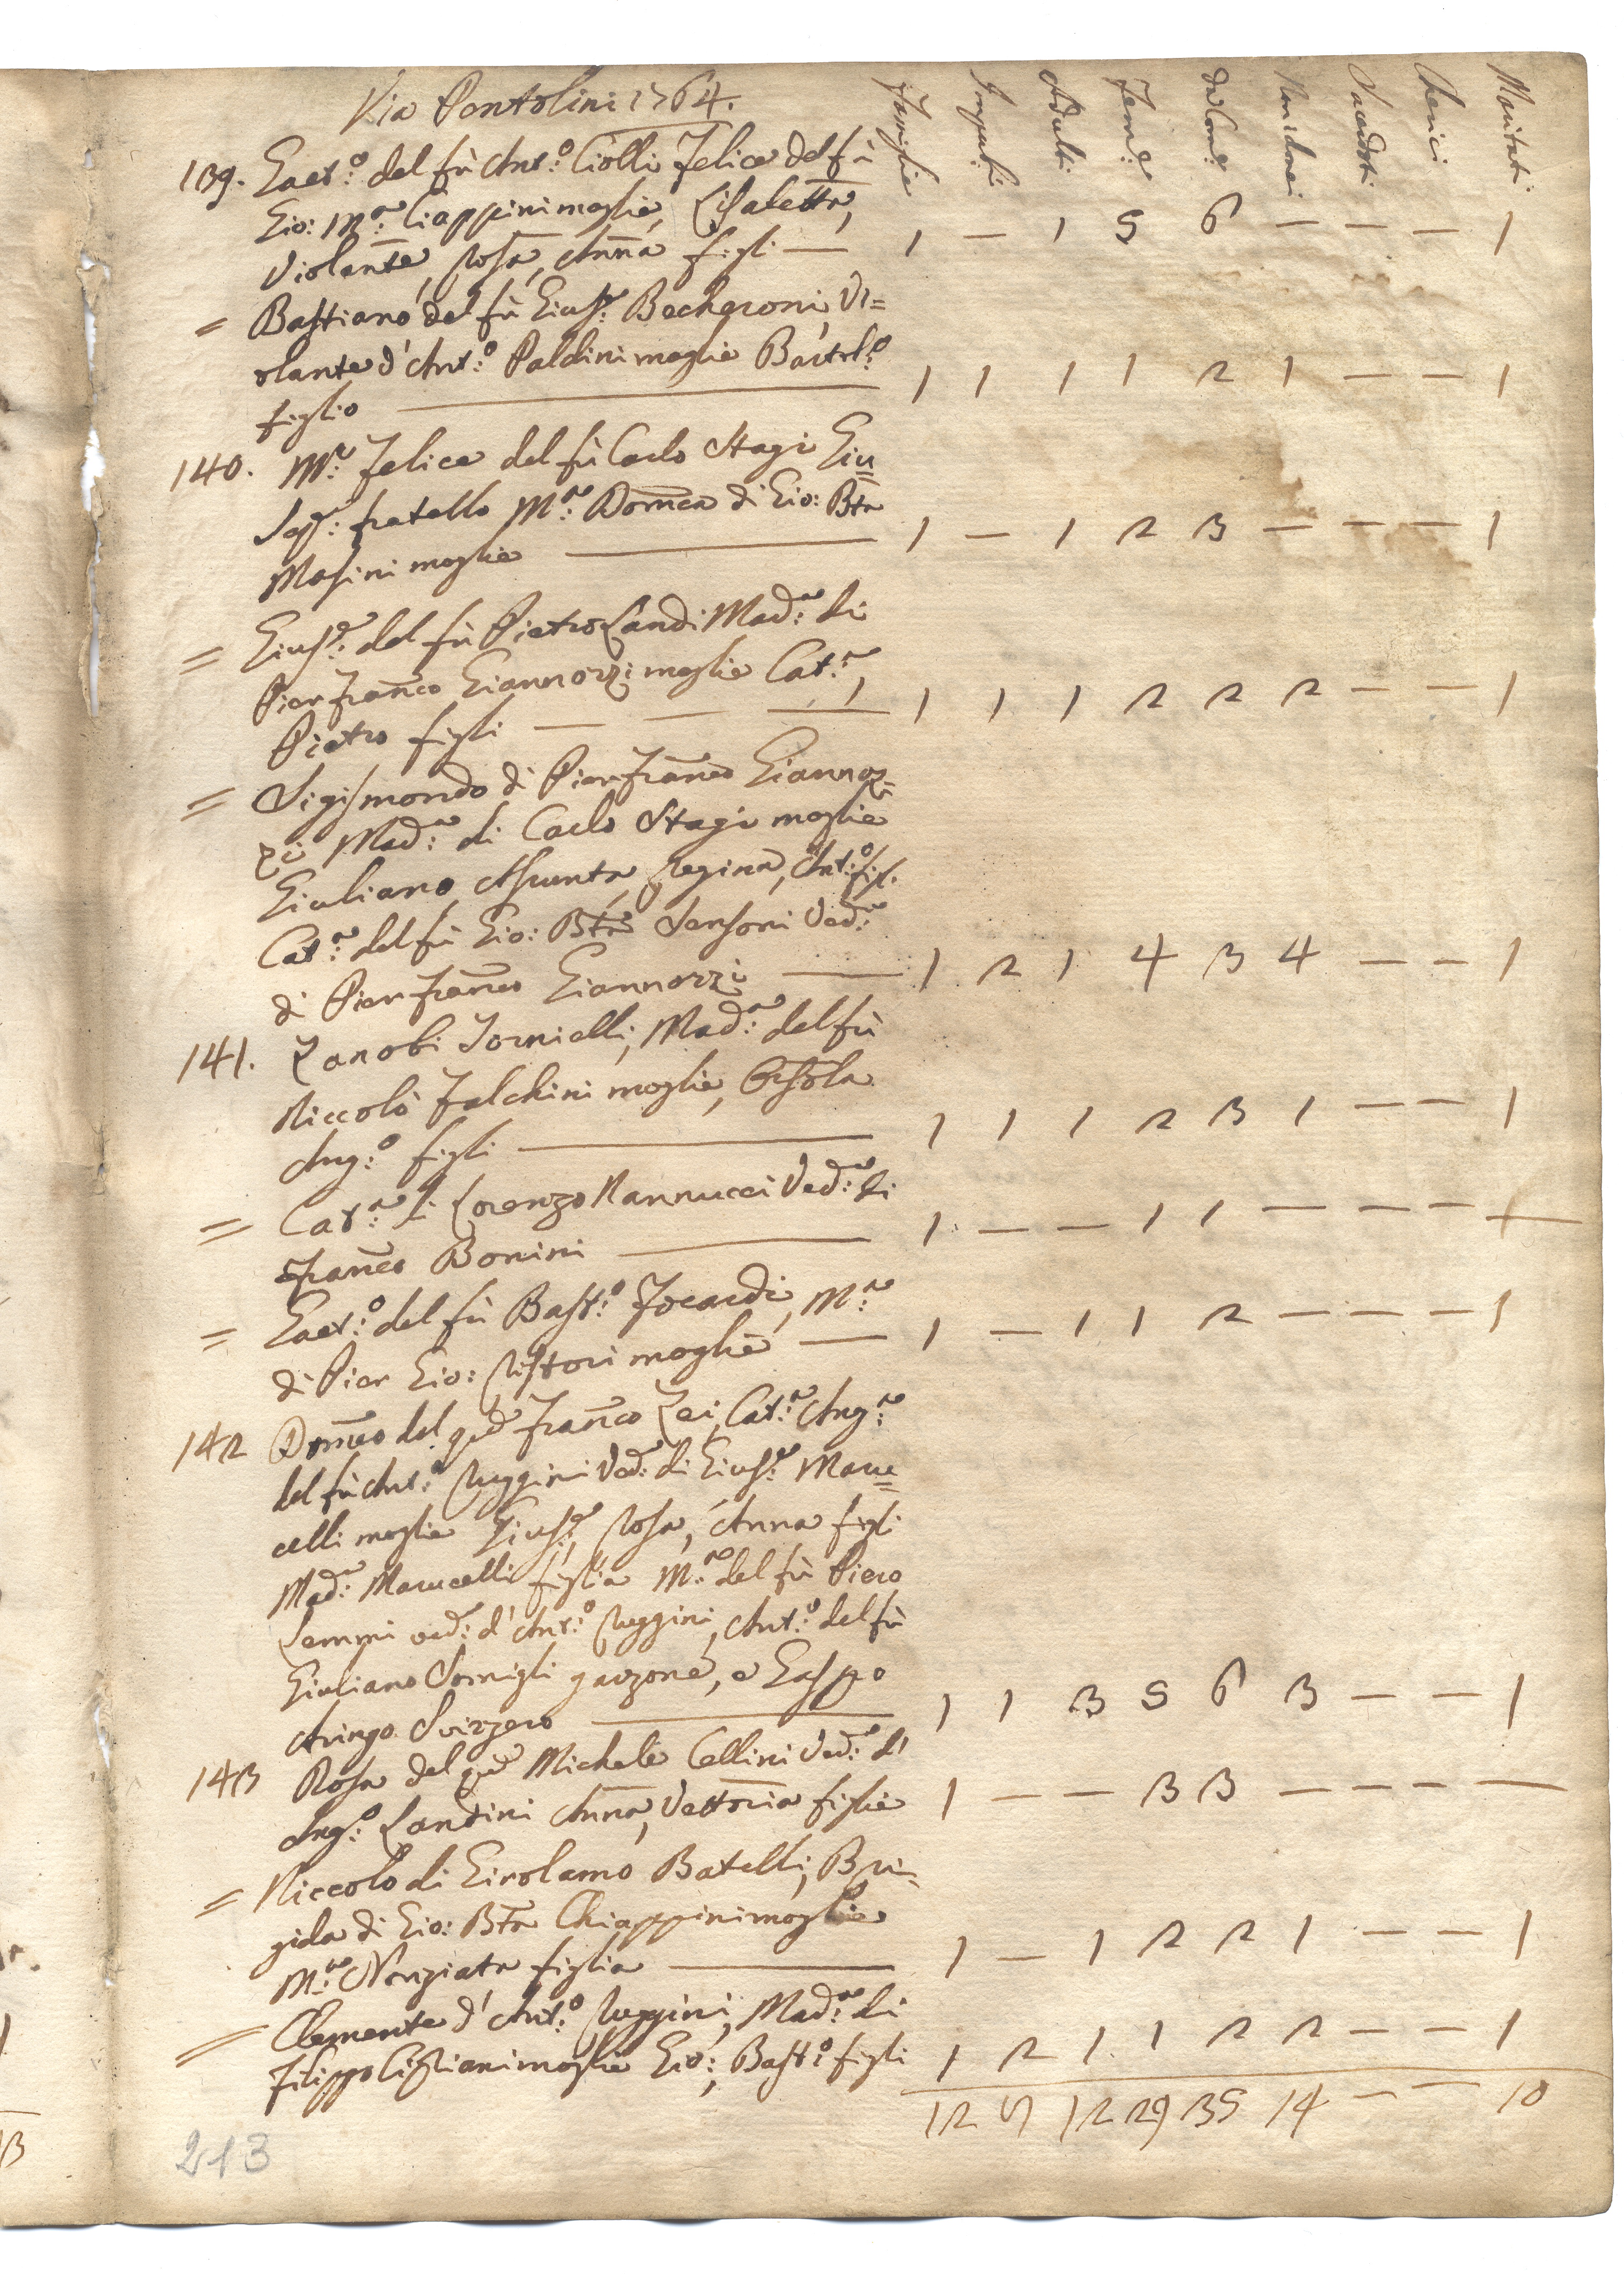 Via Pentolini 1764.
Famiglie Impuberi Adulti Fem:e da Com:e Non da Com:ne Sacerdoti Cherici Maritati
139. Gaet:o del fù Ant:o Ciolli Felice del fù
Gio: M:a Ciappini moglie, Lisabetta,
Violante, Rosa, Anna figli — 1 — 1 5 6 — — — 1
= Bastiano del fù Gius:e Becheroni, Vi=
olante d'Ant:o Paldini moglie Bartol:o
figlio — 1 1 1 1 2 1 — — 1
140. M:e Felice del fù Carlo Stagi Giu=
sep:e fratello M:a Dom̃ca di Gio: Bta
Masini moglie — 1 — 1 2 3 — — — 1
= Gius:e del fù Pietro Landi Mad:a di
Pier Franco Giannozzi moglie Cat:a,
Pietro figli — — — 1 1 1 2 2 2 — — 1
= Sigismondo di Pier Franco Giannoz=
zi Mad:a di Carlo Stagi moglie
Giuliano, Assunta, Regina, Ant:o figl.
Cat:a del fù Gio: Bta Sensoni Ved:a
di Pier Franco Giannozzi — 1 2 1 4 3 4 — — 1
141. Zanobi Tornielli, Mad:a del fù
Niccolò Falchini moglie, Orsola
Ang:o figli — 1 1 1 2 3 1 — — 1
= Cat:a di Lorenzo Nannucci Ved:a di
Franco Bonini — 1 — — 1 1 — — — —
= Gaet:o del fù Bast:o Focardi, M:a
di Pier Gio: Ristori moglie — 1 — 1 1 2 — — — 1
142 Dom̃co del q:m Franco Zei, Cat:a Ang:a
del fù Ant:o Ruggini Ved: di Gius:e Maru=
celli moglie Gius:e, Rosa, Anna figli
Mad:a Marucelli figlia M:a del fù Piero
Lemmi ved: d'Ant:o Ruggini, Ant:o del fù
Giuliano Somigli garzone, e Gaspo
Aringo Svizzero — 1 1 3 5 6 3 — — 1
143 Rosa del q:m Michele Cellini Ved:a d'
Ang:o Landini Anna, Vettoria figlie 1 — — 3 3 — — — —
= Niccolo di Girolamo Batelli, Bri=
gida di Gio: Bta Chiappini moglie
M:a Nunziata figlia — 1 — 1 2 2 1 — — 1
= Clemente d'Ant:o Ruggini, Mad:a di
Filippo Cigliani moglie Gio:, Bast:o figli 1 2 1 1 2 2 — — 1
12 9 12 29 35 14 — — 10
213